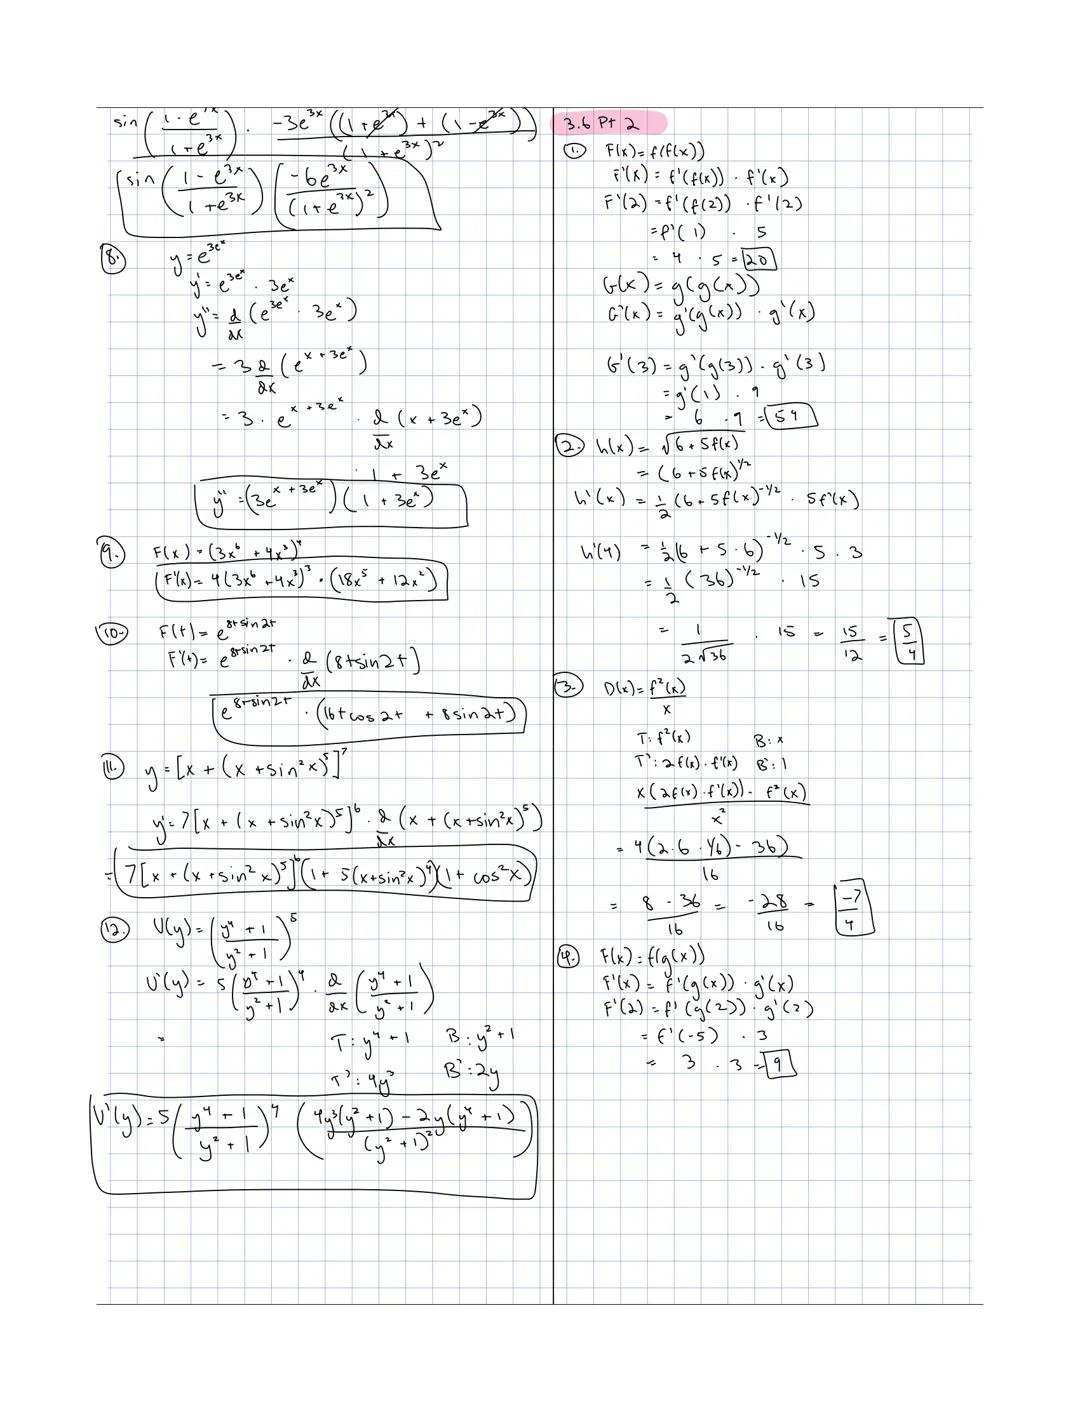 sin (1 - e^3x / 1 + e^3x) · -3e^3x ((1 + e^3x) + (1 - e^3x)) / (1 + e^3x)^2
sin (1 - e^3x / 1 + e^3x) (-6e^3x / (1 + e^3x)^2)
8. y = e^3e^x
y' = e^3e^x · 3e^x
y'' = d/dx (e^3e^x · 3e^x)
= 3 d/dx (e^x + 3e^x)
= 3 · e^x + 3e^x · d/dx (x + 3e^x)
· 1 + 3e^x
y'' = (3e^x + 3e^x) (1 + 3e^x)
9. F(x) = (3x^6 + 4x^3)^4
F'(x) = 4(3x^6 + 4x^3)^3 · (18x^5 + 12x^2)
10. F(t) = e^8tsin2t
F'(t) = e^8tsin2t · d/dx (8tsin2t]
e^8tsin2t · (16tcos2t + 8sin2t)
11. y = [x + (x + sin²x)^5]^7
y' = 7[x + (x + sin²x)^5]^6 · d/dx (x + (x + sin²x)^5)
= 7[x + (x + sin²x)^5]^6 (1 + 5(x + sin²x)^4)(1 + cos²x)
12. U(y) = (y^4 + 1 / y² + 1)^5
U'(y) = 5 (y^4 + 1 / y² + 1)^4 · d/dx (y^4 + 1 / y² + 1)
= T: y^4 + 1 B: y² + 1
T': 4y³ B': 2y
U'(y) = 5 (y^4 + 1 / y² + 1)^4 (4y³(y² + 1) - 2y(y^4 + 1) / (y² + 1)²)
3.6 Pt 2
1. F(x) = f(f(x))
F'(x) = f'(f(x)) · f'(x)
F'(2) = f'(f(2)) · f'(2)
= f'(1) · 5
= 4 · 5 = 20
G(x) = g(g(x))
G'(x) = g'(g(x)) · g'(x)
G'(3) = g'(g(3)) · g'(3)
= g'(1) · 9
= 6 · 9 = 54
2. h(x) = √6 + 5f(x)
= (6 + 5f(x)^1/2
h'(x) = 1/2 (6 + 5f(x)^-1/2 · 5f'(x)
h'(4) = 1/2 (6 + 5 · 6)^-1/2 · 5 · 3
= 1/2 (36)^-1/2 · 15
= 1 / 2√36 · 15 = 15/12 = 5/4
3. D(x) = f²(x) / x
T: f²(x) B: x
T': 2f(x) · f'(x) B': 1
x(2f(x) · f'(x)) - f²(x) / x²
= 4(2 · 6 · 1/6) - 36) / 16
= 8 - 36 / 16 = -28 / 16 = -7 / 4
4. F(x) = f(g(x))
F'(x) = f'(g(x)) · g'(x)
F'(2) = f'(g(2)) · g'(2)
= f'(-5) · 3
= 3 · 3 = 9